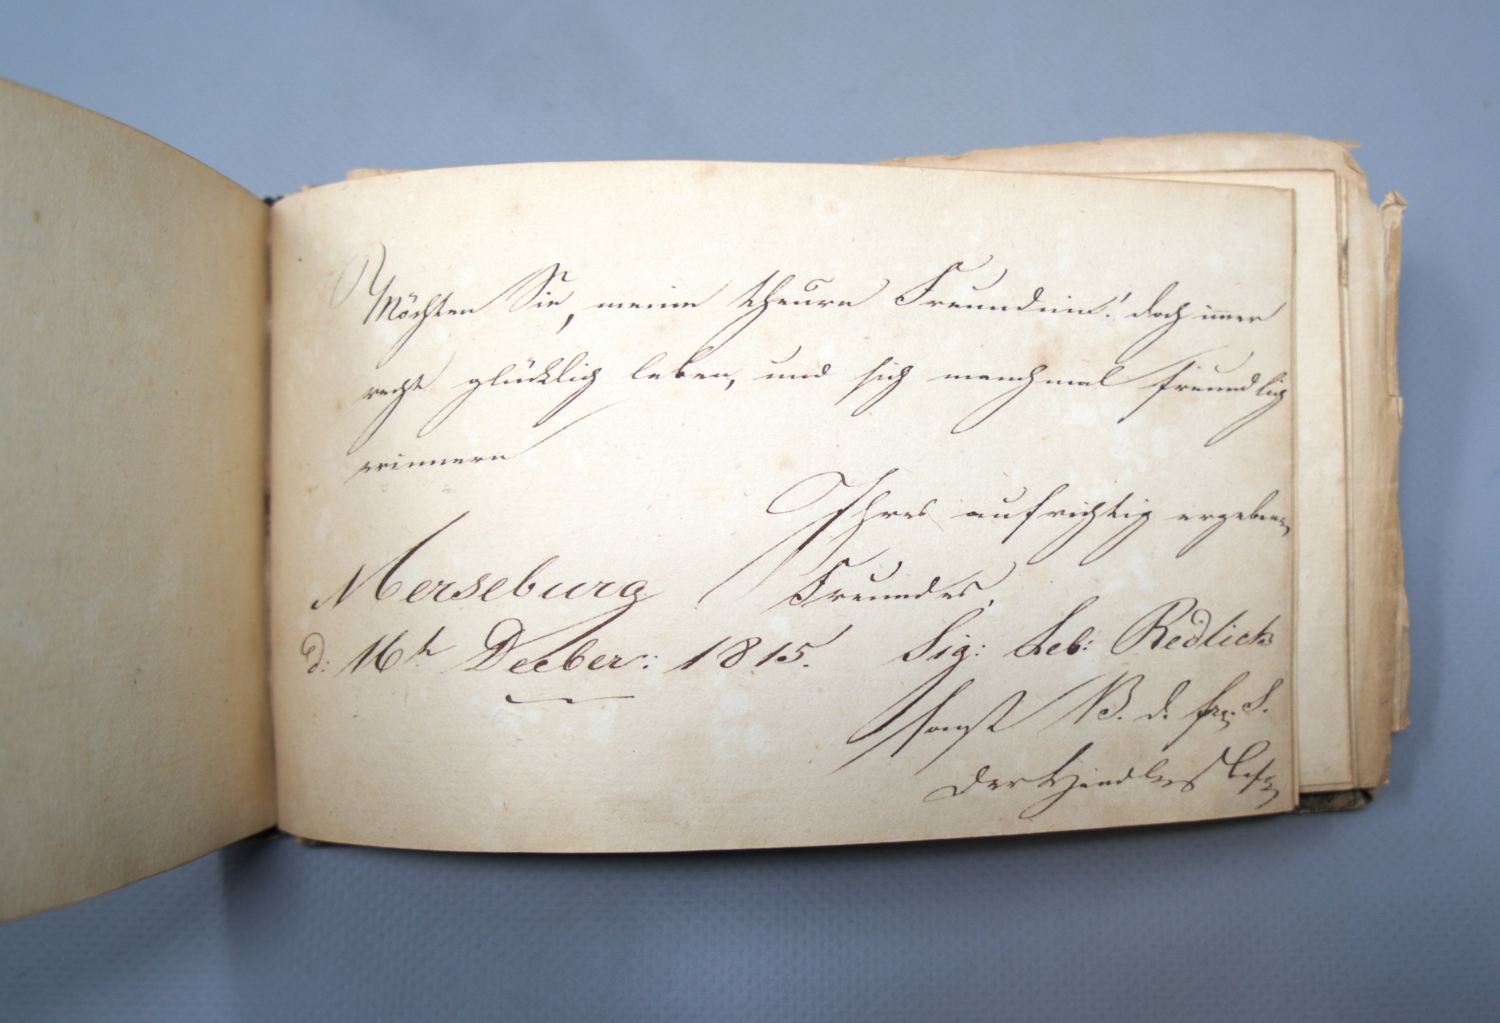 Möchten Sie, meine theure Freundin! doch immer
recht glücklich leben, und sich manchmal freundlich
erinnern
Ihres aufrichtig ergebenen
Freundes,
Merseburg
d: 16th Decber: 1815. Sig: Leb: Redlich
sonst B. d. S.